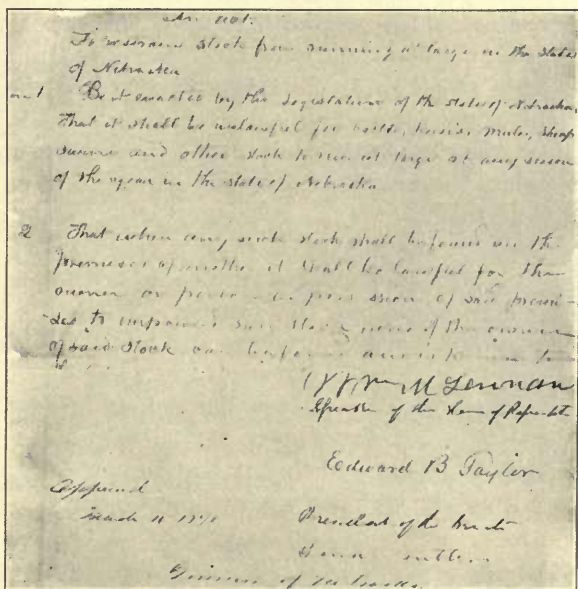 An act.
To restrain stock from running at large in the State
of Nebraska
1 Be it enacted by the Legislature of the State of Nebraska
That it shall be unlawful for cattle, horses, mules, sheep
swine and other stock to run at large at any season
of the year in the State of Nebraska
2 That when any such stock shall be found on the
premises of another it shall be lawful for the
owner or person in possession of said premi-
ses to impound said stock none of the owner
of said stock can be found
McLennan
Speaker of the House of
Edward B Taylor
Approved
March
President of the Senate
David Butler
Governor of Nebraska